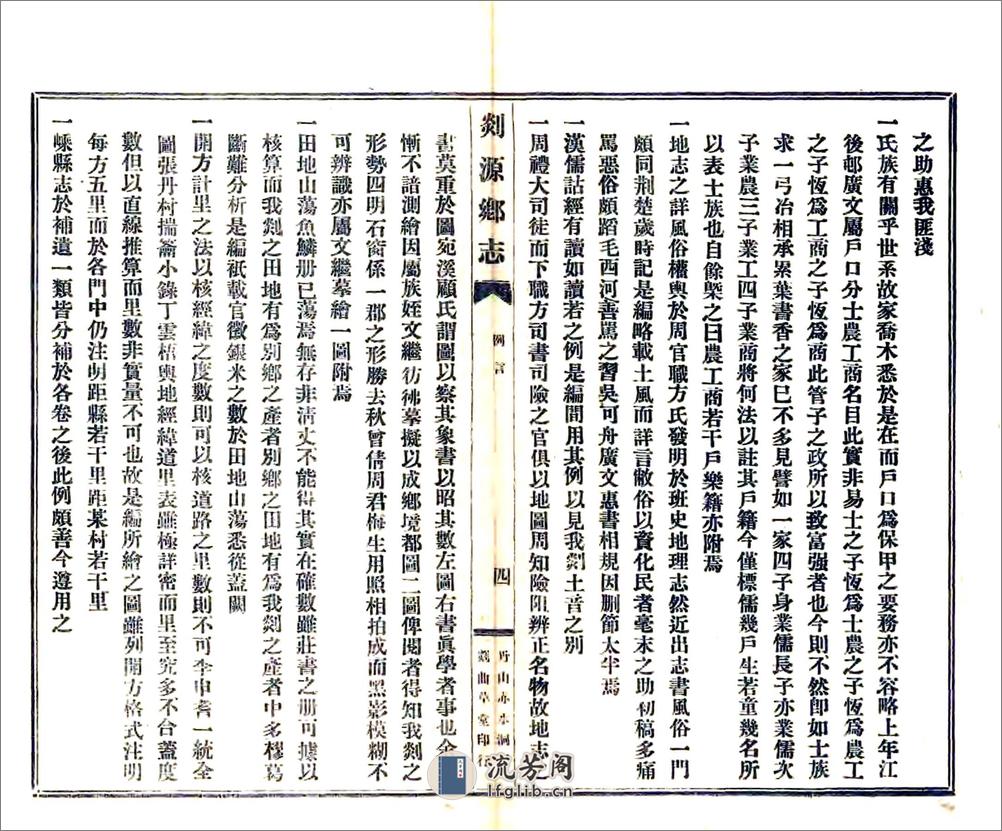 之助惠我匪淺
一氏族有關乎世系故家喬木悉於是在而戶口爲保甲之要務亦不容略上年江
後邨廣文屬戶口分士農工商名目此實非易士之子恆爲士農之子恆爲農工
之子恆爲工商之子恆爲商此管子之政所以致富强者也今則不然卽如士族
求一弓冶相承累葉書香之家已不多見譬如一家四子身業儒長子亦業儒次
子業農三子業工四子業商將何法以註其戶籍今僅標儒幾戶生若童幾名所
以表士族也自餘槩之曰農工商若干戶樂籍亦附焉
一地志之詳風俗權輿於周官職方氏發明於班史地理志然近出志書風俗一門
頗同荆楚歲時記是編略載土風而詳言敝俗以資化民者毫末之助初稿多痛
罵惡俗頗蹈毛西河善罵之習吳可舟廣文惠書相規因删節太半焉
一漢儒詁經有讀如讀若之例是編間用其例以見我剡土音之别
一周禮大司徒而下職方司書司險之官俱以地圖周知險阻辨正名物故地志
剡源鄉志
例言
四
剡曲草堂印行
書莫重於圖宛溪顧氏謂圖以察其象書以昭其數左圖右書眞學者事也余
慚不諳測繪因屬族姪文繼彷彿摹擬以成鄉境都圖二圖俾閱者得知我剡之
形勢四明石窗係一郡之形勝去秋曾倩周君梅生用照相拍成而黑影模糊不
可辨識亦屬文繼摹繪一圖附焉
一田地山蕩魚鱗册已蕩焉無存非清丈不能得其實在確數雖莊書之册可據以
核算而我剡之田地有爲别鄉之產者别鄉之田地有爲我剡之產者中多樛葛
斷難分析是編祇載官徵銀米之數於田地山蕩悉從蓋闕
一開方計里之法以核經緯之度數則可以核道路之里數則不可李申耆一統全
圖張丹村揣籥小錄丁雲梧輿地經緯道里表雖極詳密而里至究多不合蓋度
數但以直線推算而里數非實量不可也故是編所繪之圖雖列開方格式注明
每方五里而於各門中仍注明距縣若干里距某村若干里
一嵊縣志於補遺一類皆分補於各卷之後此例頗善今遵用之
流芳阁
lfglib.cn